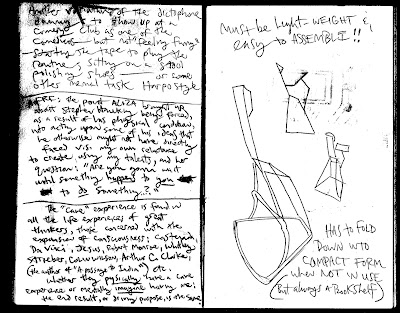 Another variation of the dictophone
dummy is to show up at a
Comedy Club as one of the
Comedians — but not "feeling funny"
starting the tape to play the
routine & sitting on a stool
polishing shoes — or some
other menial task Harpo style
the point ALIZA brought up
about Stephen Hawking being forced,
as a result of his physical condition,
into acting upon some of his ideas that
he otherwise might not have directly
faced vis. my own reluctance
to create using my talents, and her
question: "Are you gonna wait
until something happens to you
to do something..?"
The "Cave" experience is found in
all the life experiences of great
thinkers, those concerned with the
expansion of consciousness; Castaneda,
Da Vinci, Jesus, Robert Monroe, Whitley
Strieber, Colin Wilson, Arthur C. Clarke,
(the author of "A passage to India") etc.
whether they physically have a cave
experience or mentally imagine having one;
the end result, or driving purpose, is the same
Must be Light-WEIGHT &
easy to ASSEMBLE!!
HAS to FOLD
DOWN INTO
COMPACT FORM
when NOT IN USE
(But always a Book Shelf)